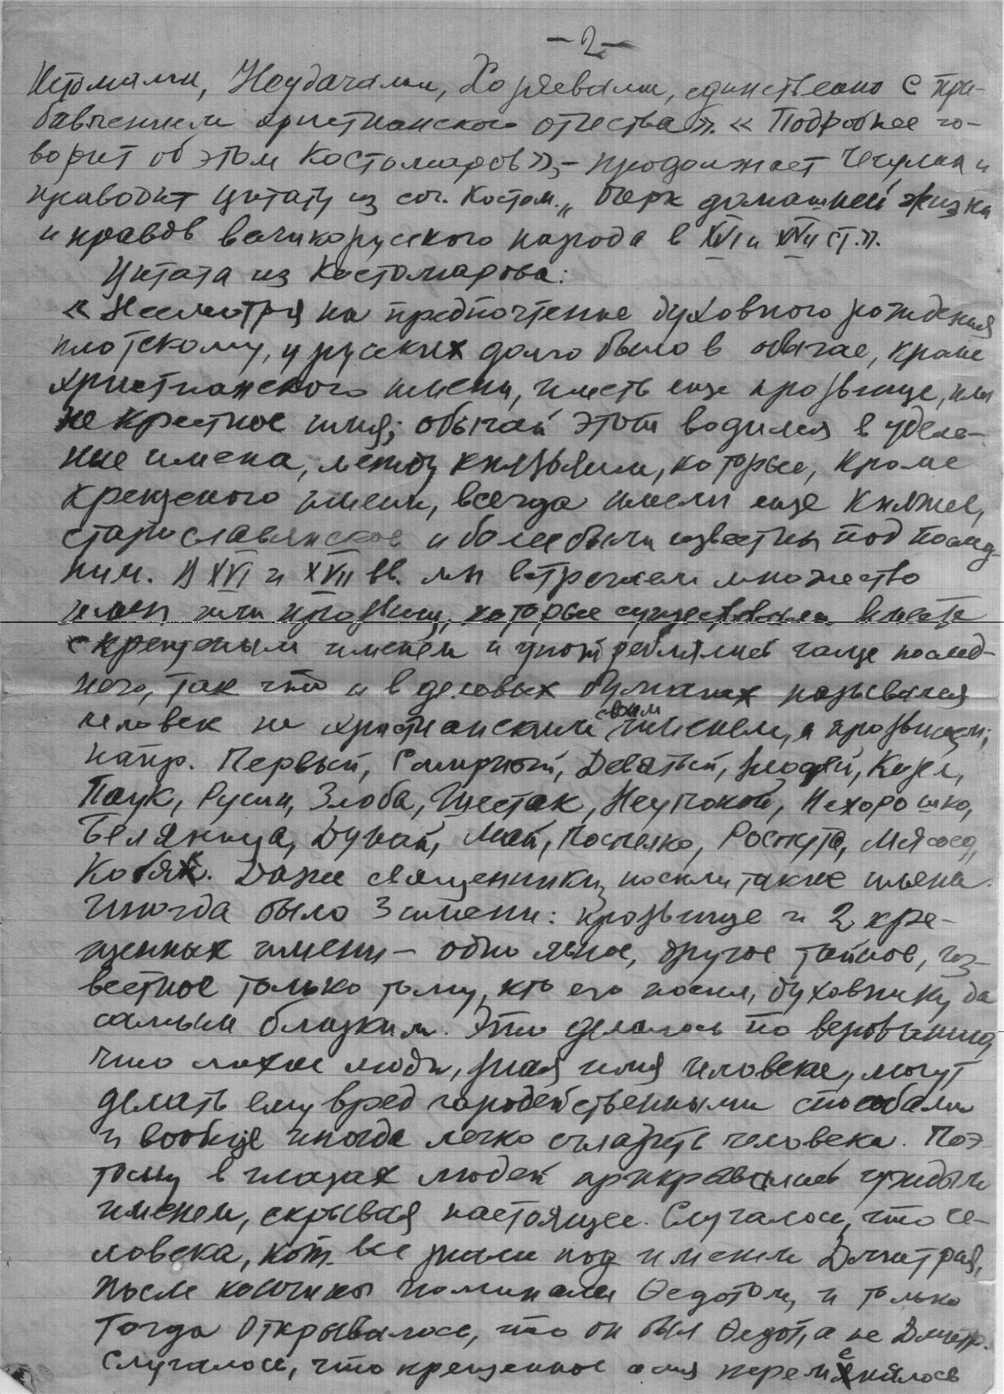 -2-
Истомами, Неудачами, Хозяевами, единственно с при-
бавлением христианского отчества». «Подробнее го-
ворит об этом Костомаров»,- продолжает Чечулин и
приводит цитату из соч. Костом. „Очерк домашней жизни
и нравов великорусского народа в XVI и XVII ст.".
Цитата из Костомарова:
«Несмотря на предпочтение духовного рождения
плотскому, у русских долго было в обычае, кроме
христианского имени, иметь еще прозвище, или
не крестное имя; обычай этот водился в уделе-
ные имена, между князьями, которые, кроме
крещеного имени, всегда имели еще княжее,
старославянское и более были известны под послед-
ним. В XVI и XVII вв. мы встречаем множество
имен или прозвищ, которые существовали вместе
с крещеным именем и употреблялись чаще послед-
него, так что и в деловых бумагах назывался
человек не христианским своим именем, а прозвищем;
напр. Первый, Смирной, Девятый, Злодей, Козел,
Паук, Русин, Злоба, Шестак, Неупокой, Нехорошко,
Беляница, Дунай, Май, Поспелко, Роспута, Мясоед,
Кобяк. Даже священники носили такие имена.
Иногда было 3 имени: прозвище и 2 кре-
щенных имени - одно явное, другое тайное, из-
вестное только тому, кто его носил, духовнику да
самым близким. Это делалось по верованию,
что лихие люди, зная имя человека, могут
делать ему вред чародейственными способами
и вообще иногда легко сглазить человека. Поэ-
тому в глазах людей прикрывались чуждым
именем, скрывая настоящее. Случалось, что че-
ловека, кот. все знали под именем Дмитрия,
после кончины поминали Федотом, и только
тогда открывалось, что он был Федот, а не Дмитр.
Случалось, что крещенное имя переменялось